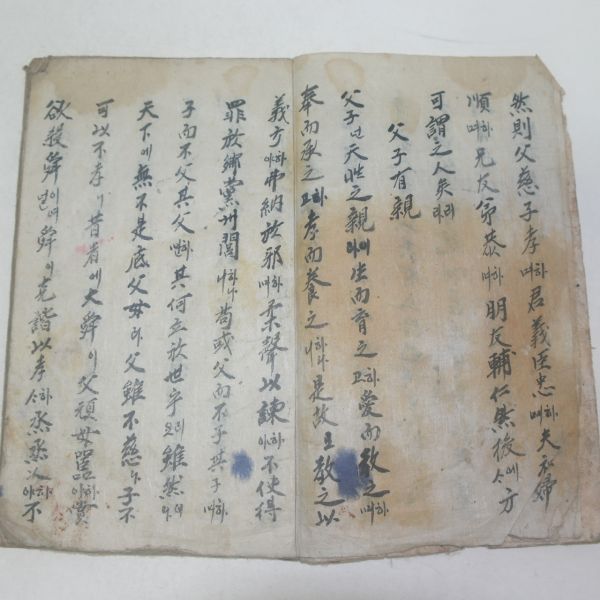 然則父慈子孝하며君義臣忠하며夫和婦
順하며兄友弟恭하며朋友輔仁然後에사方
可謂之人矣리라
父子有親
父子는天性之親이라生而育之하고愛而敎之하며
奉而承之하고孝而養之하나니是故로敎之以
義方하야弗納於邪하며柔聲以諫하야不使得
罪於鄕黨州閭하나니苟或父而不子其子하며
子而不父其父하면其何立於世乎리오雖然이나
天下에無不是底父母라父雖不慈나子不
可以不孝니昔者에大舜이父頑母嚚하야嘗
欲殺舜이어든舜이克諧以孝하사烝烝乂하야不